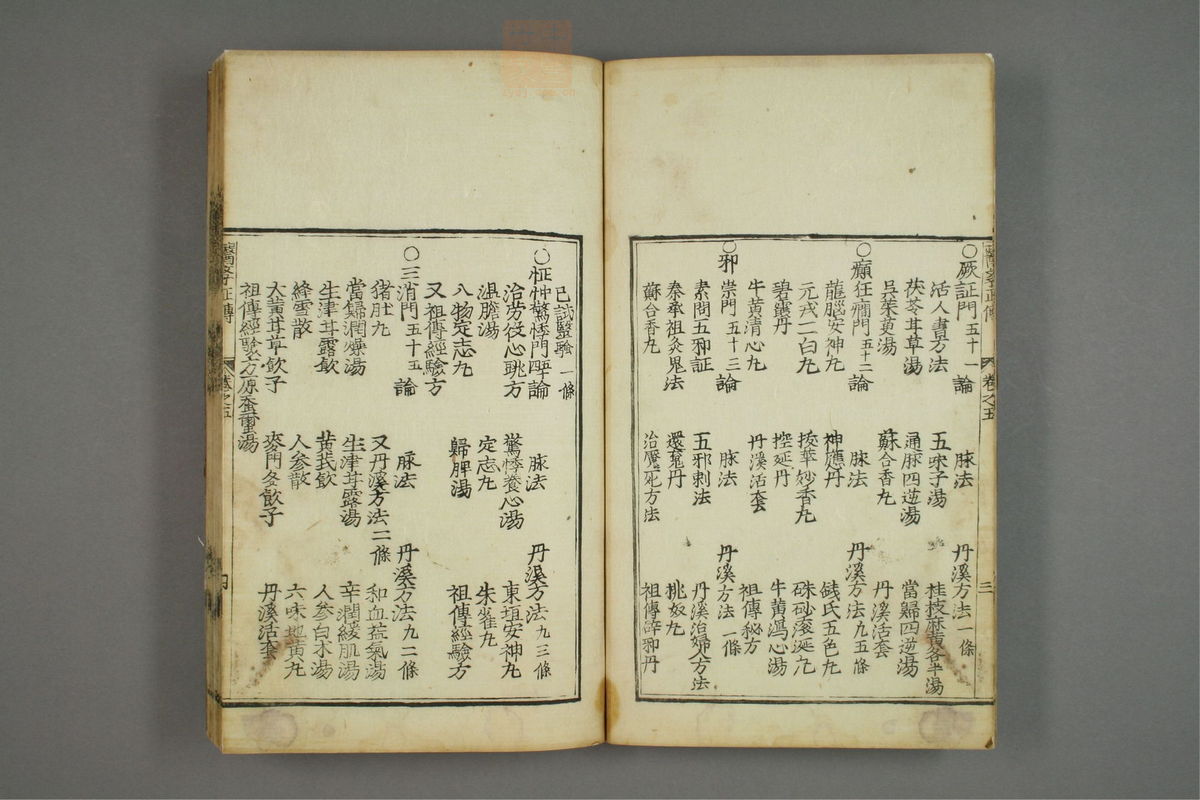 ○厥証門五十一 論 脉法 丹溪方法一條
活人書方法 五味子湯 桂枝麻黄各半湯
茯苓甘草湯 通脉四逆湯 當歸四逆湯
吴茱萸湯 蘇合香丸 丹溪活套
○癲狂癇門五十二 論 脉法 丹溪方法九五條
龍腦安神丸 神應丹 錢氏五色丸
元戎二白丸 按華妙香丸 硃砂滚涎丸
碧霞丹 控涎丹 牛黄瀉心湯
牛黄清心丸 丹溪活套 祖傳秘方
○邪祟門五十三 論 脉法 丹溪方法一條
素問五邪証 五邪刺法 丹溪治婦人方法
秦承祖灸鬼法 還魂丹 桃奴丸
蘇合香丸 治魘死方法 祖傳辟邪丹
醫學正傳 卷之五 三
已試醫驗一條
○怔忡驚悸門五十四 論 脉法 丹溪方法九三條
治勞役心跳方 驚悸養心湯 東垣安神丸
温膽湯 定志丸 朱雀丸
八物定志丸 歸脾湯 祖傳經驗方
又祖傳經驗方
○三消門五十五 論 脉法 丹溪方法九二條
猪肚丸 又丹溪方法二條 和血益氣湯
當歸潤燥湯 生津甘露湯 辛潤緩肌湯
生津甘露飲 黄芪飲 人參白朮湯
絳雪散 人參散 六味地黄丸
大黄甘草飲子 麥門冬飲子 丹溪活套
祖傳經驗方原蚕蠒湯
醫學正傳 卷之五 四